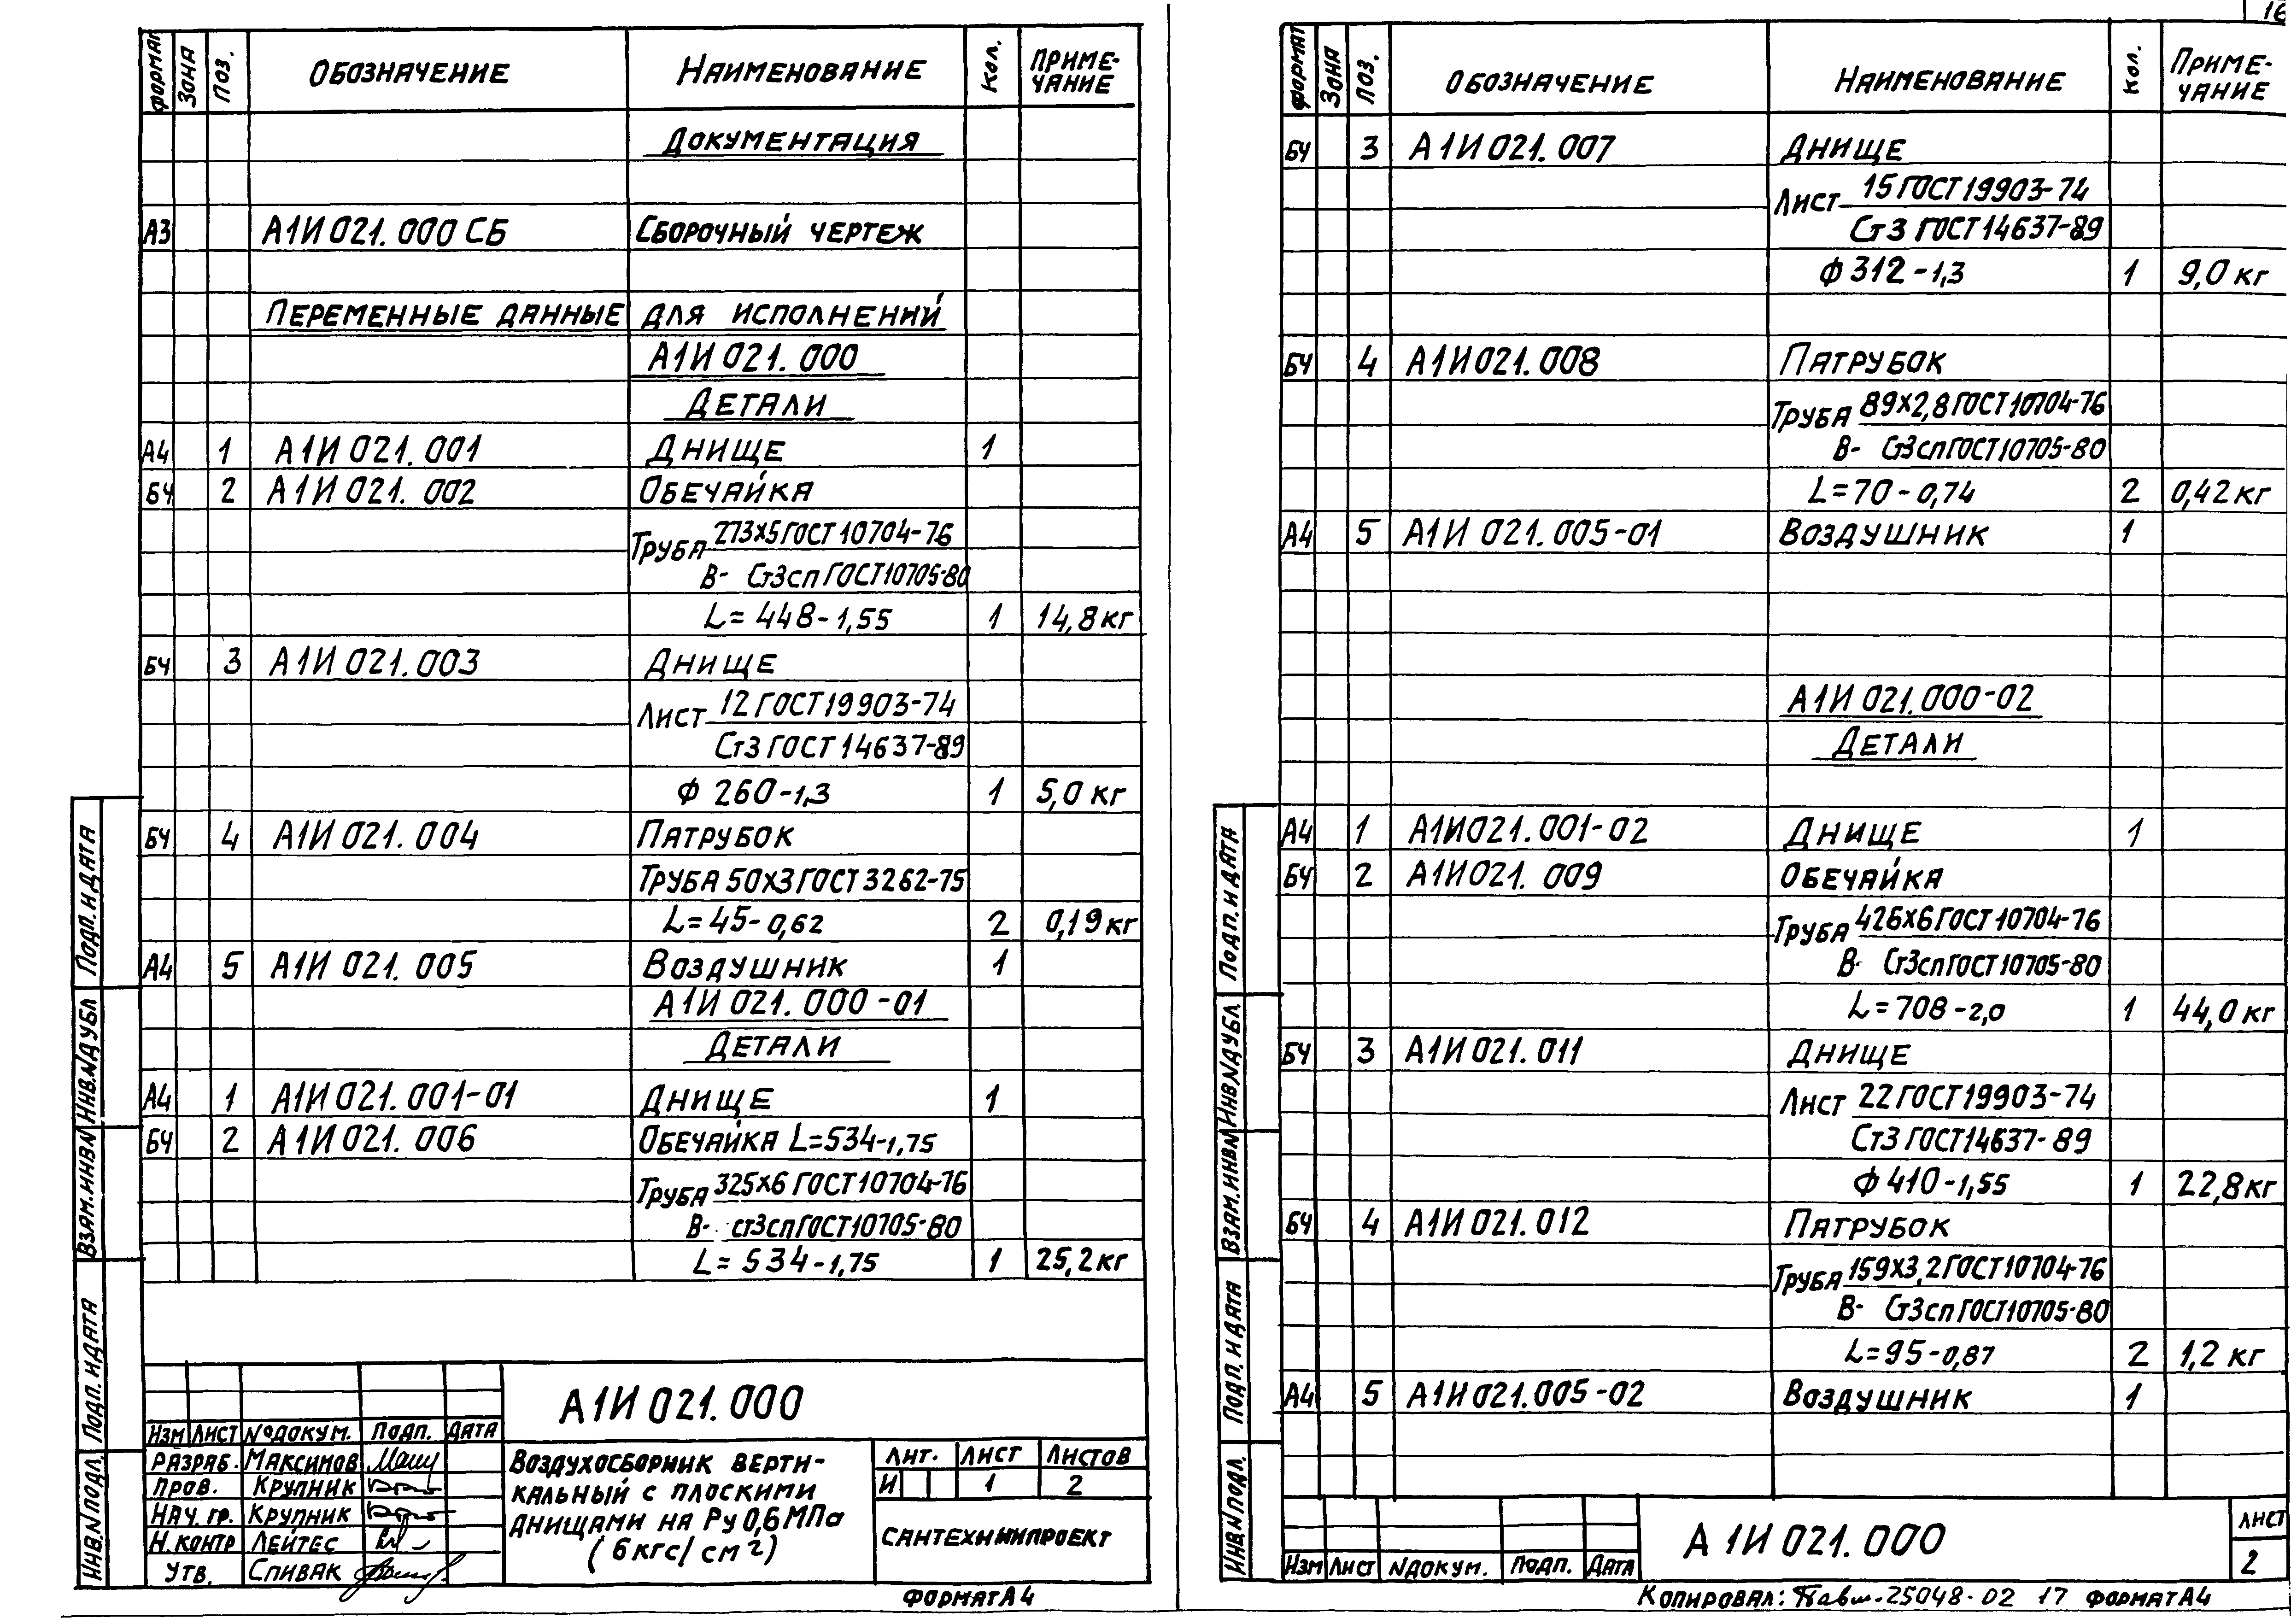 16
ФОРМАТ ЗОНА ПОЗ. ОБОЗНАЧЕНИЕ НАИМЕНОВАНИЕ КОЛ. ПРИМЕ-
ЧАНИЕ
ДОКУМЕНТАЦИЯ
А3 А1И 021.000 СБ СБОРОЧНЫЙ ЧЕРТЕЖ
ПЕРЕМЕННЫЕ ДАННЫЕ ДЛЯ ИСПОЛНЕНИЙ
А1И 021.000
ДЕТАЛИ
А4 1 А1И 021.001 ДНИЩЕ 1
БЧ 2 А1И 021.002 ОБЕЧАЙКА
ТРУБА 273Х5 ГОСТ 10704-76
В- Ст3сп ГОСТ 10705-80
L= 448-1,55 1 14,8 кг
БЧ 3 А1И 021.003 ДНИЩЕ
ЛИСТ 12 ГОСТ 19903-74
Ст3 ГОСТ 14637-89
Ф 260-1,3 1 5,0 кг
БЧ 4 А1И 021.004 ПАТРУБОК
ТРУБА 50Х3 ГОСТ 3262-75
L=45-0,62 2 0,19 кг
А4 5 А1И 021.005 ВОЗДУШНИК 1
А1И 021.000-01
ДЕТАЛИ
А4 1 А1И 021.001-01 ДНИЩЕ 1
БЧ 2 А1И 021.006 ОБЕЧАЙКА L=534-1,75
ТРУБА 325Х6 ГОСТ 10704-76
В- ст3сп ГОСТ 10705-80
L= 534-1,75 1 25,2 кг
ПОДП. И ДАТА
ИНВ.N ДУБЛ
ВЗАМ.ИНВ.N
ПОДП. И ДАТА
ИНВ.N ПОДЛ.
А1И 021.000
ИЗМ ЛИСТ №ДОКУМ. ПОДП. ДАТА
РАЗРАБ. МАКСИМОВ
ПРОВ. КРУПНИК
НАЧ. ГР. КРУПНИК
Н.КОНТР ЛЕЙТЕС
УТВ. СПИВАК
ВОЗДУХОСБОРНИК ВЕРТИ-
КАЛЬНЫЙ С ПЛОСКИМИ
ДНИЩАМИ НА Ру 0,6 МПа
(6 кгс/см²)
ЛИТ. ЛИСТ ЛИСТОВ
И 1 2
САНТЕХНИИПРОЕКТ
ФОРМАТ А4
ФОРМАТ ЗОНА ПОЗ. ОБОЗНАЧЕНИЕ НАИМЕНОВАНИЕ КОЛ. ПРИМЕ-
ЧАНИЕ
БЧ 3 А1И 021.007 ДНИЩЕ
ЛИСТ 15 ГОСТ 19903-74
Ст3 ГОСТ 14637-89
Ф 312-1,3 1 9,0 кг
БЧ 4 А1И 021.008 ПАТРУБОК
ТРУБА 89Х2,8 ГОСТ 10704-76
В- Ст3сп ГОСТ 10705-80
L=70-0,74 2 0,42 кг
А4 5 А1И 021.005-01 ВОЗДУШНИК 1
А1И 021.000-02
ДЕТАЛИ
А4 1 А1И 021.001-02 ДНИЩЕ 1
БЧ 2 А1И 021.009 ОБЕЧАЙКА
ТРУБА 426Х6 ГОСТ 10704-76
В- Ст3сп ГОСТ 10705-80
L=708-2,0 1 44,0 кг
БЧ 3 А1И 021.011 ДНИЩЕ
ЛИСТ 22 ГОСТ 19903-74
Ст3 ГОСТ 14637-89
Ф 410-1,55 1 22,8 кг
БЧ 4 А1И 021.012 ПАТРУБОК
ТРУБА 159Х3,2 ГОСТ 10704-76
В- Ст3сп ГОСТ 10705-80
L=95-0,87 2 1,2 кг
А4 5 А1И 021.005-02 ВОЗДУШНИК 1
ПОДП. И ДАТА
ИНВ.N ДУБЛ.
ВЗАМ.ИНВ.N
ПОДП. И ДАТА
ИНВ.N ПОДЛ.
ИЗМ ЛИСТ NДОКУМ. ПОДП. ДАТА
А1И 021.000
ЛИСТ
2
КОПИРОВАЛ: 25048-02 17 ФОРМАТ А4